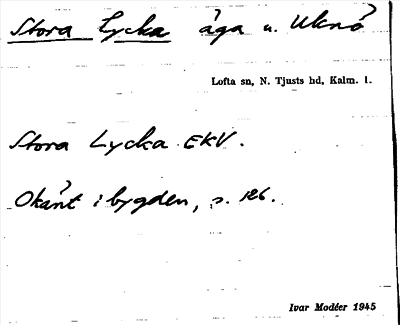 Stora Lycka äga u. Uknö
Lofta sn, N. Tjusts hd, Kalm. l.
Stora Lycka EKV.
Okänt i bygden, s. 126.
Ivar Modéer 1945